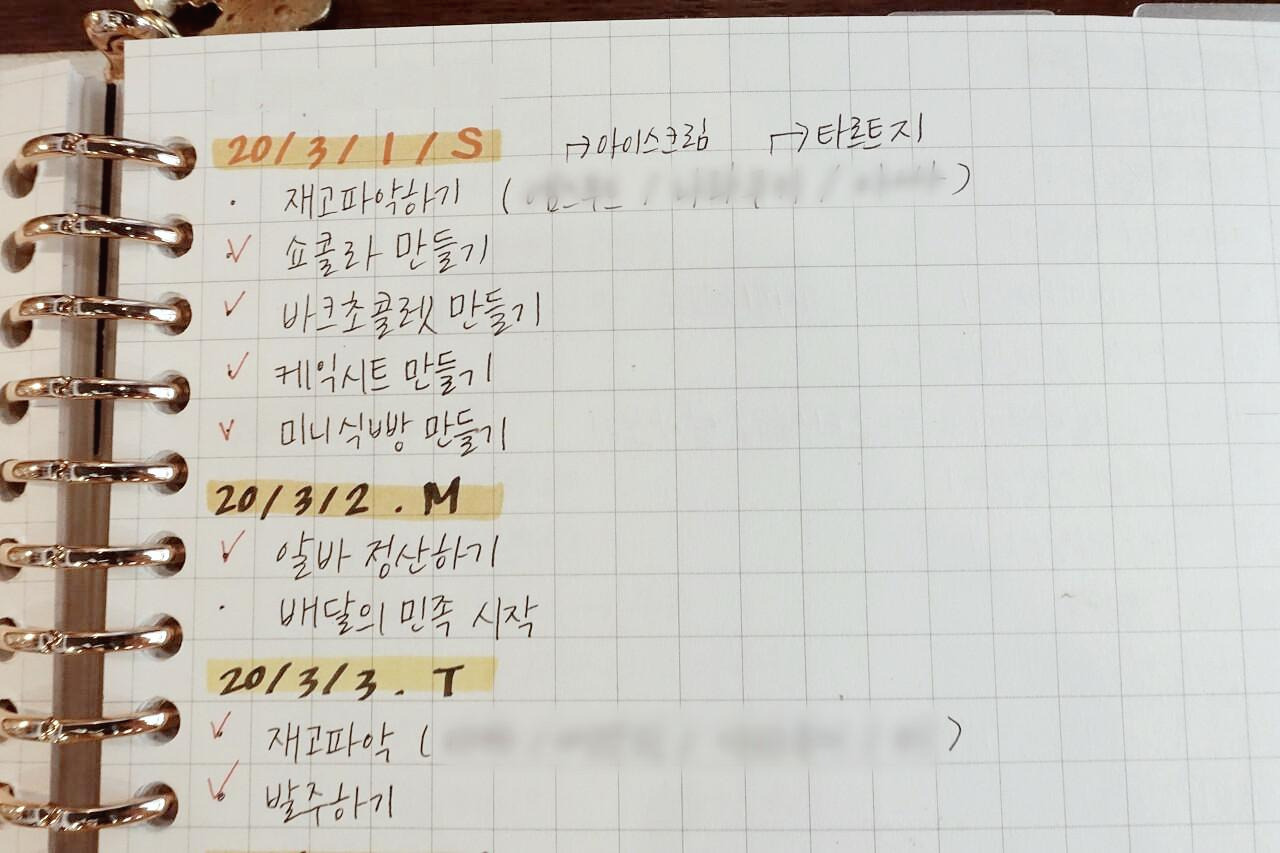 20/3/1/S →아이스크림 →타르트지
· 재고파악하기 ( / / )
✓ 쇼콜라 만들기
✓ 바크초콜렛 만들기
✓ 케익시트 만들기
✓ 미니식빵 만들기
20/3/2. M
✓ 알바 정산하기
· 배달의 민족 시작
20/3/3. T
✓ 재고파악 ( / / / )
✓ 발주하기